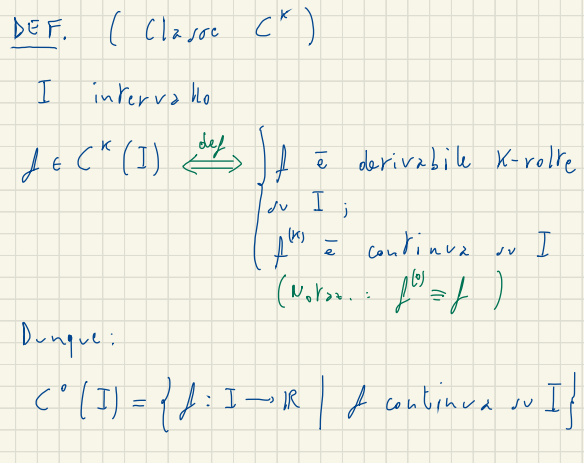 DEF. ( Classe C^K )
I intervallo
f ∈ C^K (I) ⟺ def { f è derivabile K-volte
su I ;
f^(K) è continua su I
(Notaz. : f^(0) ≡ f )
Dunque :
C^0 (I) = { f : I → ℝ | f continua su I }